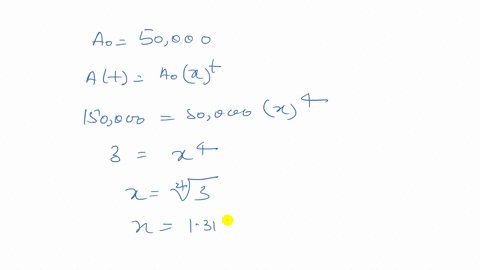 A₀ = 50,000
A(t) = A₀(x)^t
150,000 = 50,000 (x)^4
3 = x^4
x = ∜3
x = 1.31